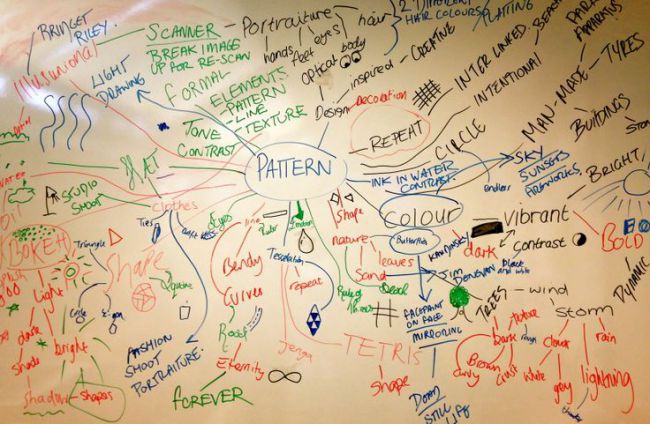 BRIDGET
RILEY.
Illusional
SCANNER
BREAK IMAGE
UP FOR RE-SCAN
FORMAL
LIGHT
DRAWING
ELEMENTS
- PATTERN
- LINE
- TEXTURE
TONE
CONTRAST
Portraiture
hair
HAIR COLOURS
PLATING
hands
feet
eyes
Optical body
inspired
CREATIVE
Design
Decoration
REPEAT
CIRCLE
INTER LINKED.
INTENTIONAL
MAN-MADE
TYRES
BUILDINGS
PATTERN
INK IN WATER
CONTRAST
SKY
SUNSETS
FIREWORKS
endless
BRIGHT
STUDIO
SHOOT
clothes
Ties
BOKEH
Triangle
Shape
Square
Circle
Light
dark
shade
bright
shadow
Shapes
FASHION
SHOOT
PORTRAITURE.
Eyes
line
Bendy
Curves
Roots
Eternity
FOREVER
Tesselation
repeat
Jenga
TETRIS
shape
Shape
nature
leaves
Sand
Beach
Rule of
Thirds
Colour
Butterflies
KANDINSKY
dark
Vibrant
Contrast
Black
and white
BOLD
DYNAMIC
JIM
DONOVAN
FACEPAINT
ON FACE
MIRRORING
STILL
LIFE
TREES
wind
Storm
texture
Bark
rough
Brown
curly
white
cloud
grey
rain
lightning
thunder